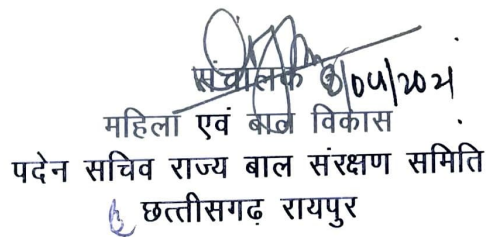 संचालक 8/04/2021
महिला एवं बाल विकास
पदेन सचिव राज्य बाल संरक्षण समिति
छत्तीसगढ़ रायपुर